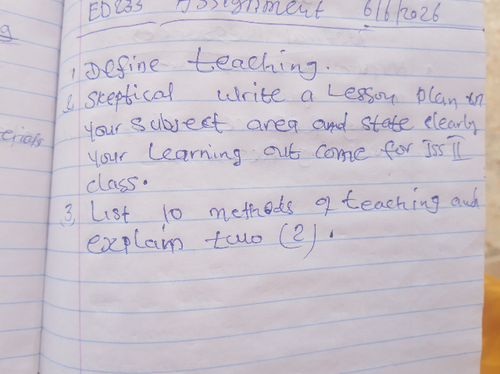 ED233 Assignment 6/6/2026
1. Define teaching.
2. Skeptical write a Lesson plan in
your subject area and state clearly
your Learning out come for Jss II
class.
3, List 10 methods of teaching and
explain two (2).